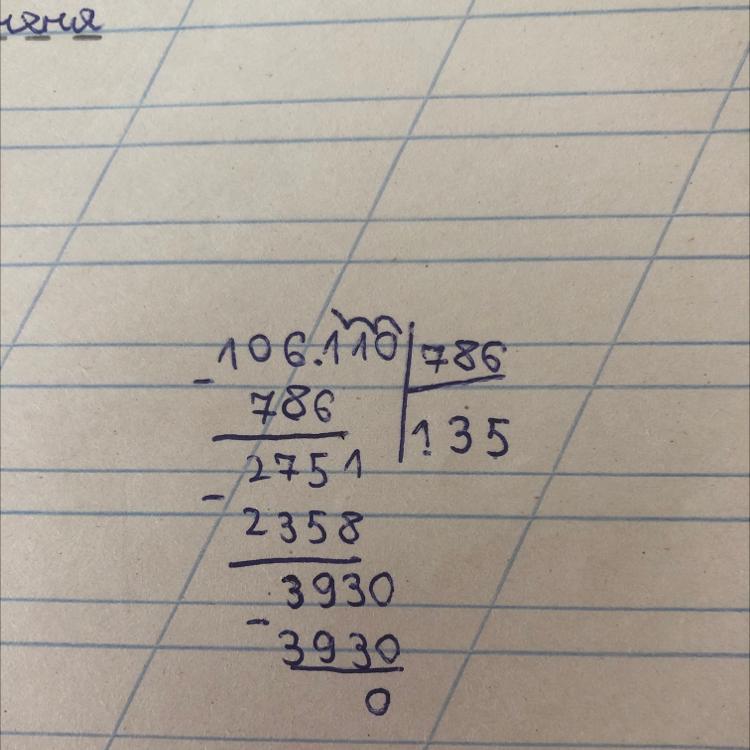 106.110 786
- 786 135
2751
- 2358
3930
- 3930
0